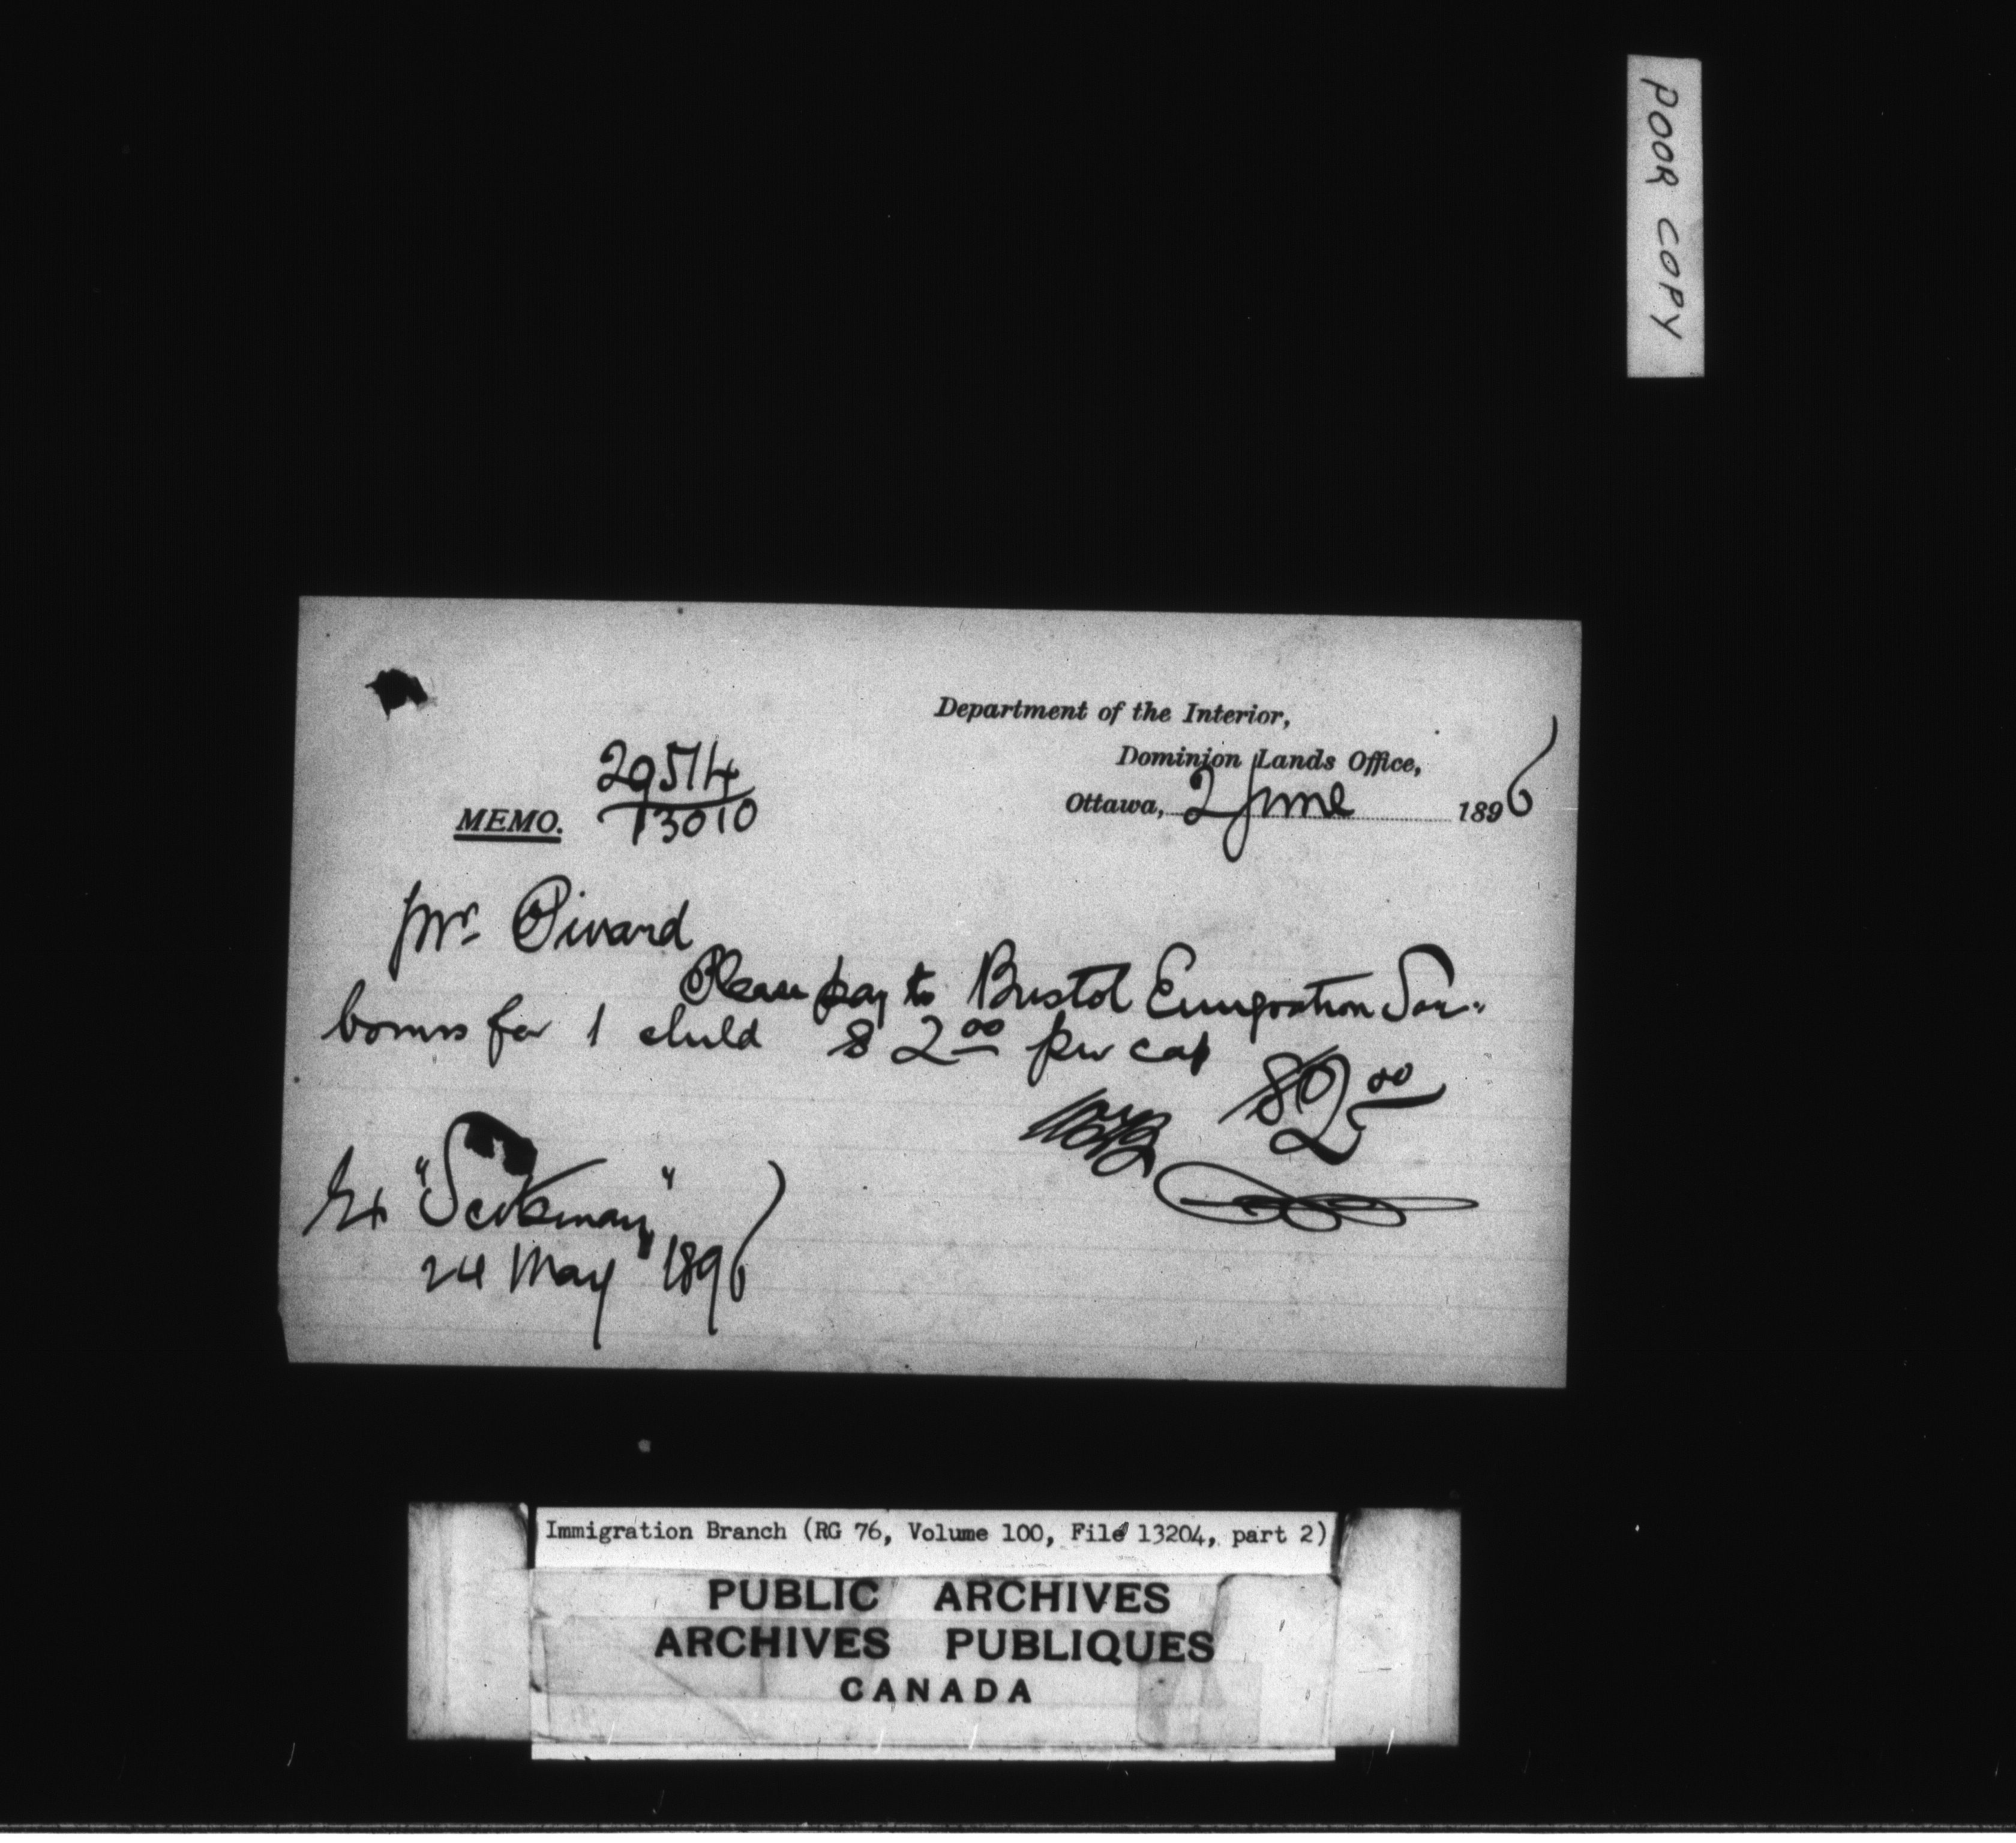 POOR COPY
Department of the Interior,
Dominion Lands Office,
29514
13010
MEMO.
Ottawa, 2 June 1896
Mr. Pinard
Please pay to Bristol Emigration Soc.
bonus for 1 child $2.00 per cap
$2.00
Ex "Scotsman"
24 May 1896
Immigration Branch (RG 76, Volume 100, File 13204, part 2)
PUBLIC ARCHIVES
ARCHIVES PUBLIQUES
CANADA